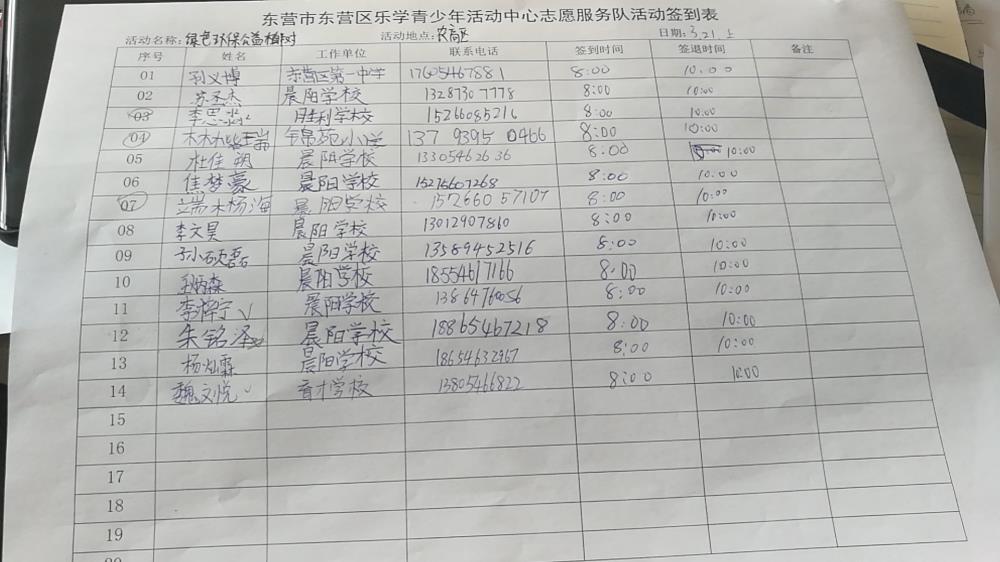 东营市东营区乐学青少年活动中心志愿服务队活动签到表
活动名称:绿色环保公益植树 活动地点:农高区 日期:3.21.上
序号 姓名 工作单位 联系电话 签到时间 签退时间 备注
01 刘义博 东营区第一中学 17605467881 8:00 10:00
02 苏圣杰 晨阳学校 13287307778 8:00 10:00
03 李思淼 胜利学校 15266085216 8:00 10:00
04 锦苑小学 137 9395 0466 8:00 10:00
05 杜佳朔 晨阳学校 13305462636 8:00 10:00
06 焦梦豪 晨阳学校 15275607268 8:00 10:00
07 端木杨海 晨阳学校 15266057107 8:00 10:00
08 李文昊 晨阳学校 13012907860 8:00 10:00
09 孙硕磊 晨阳学校 13589452516 8:00 10:00
10 晨阳学校 18554617166 8:00 10:00
11 李梓宁 ✓ 晨阳学校 8:00 10:00
12 朱铭泽 晨阳学校 18865467218 8:00 10:00
13 杨灿霖 晨阳学校 18654632967 8:00 10:00
14 魏文悦 ✓ 育才学校 13805466822 8:00 10:00
15
16
17
18
19